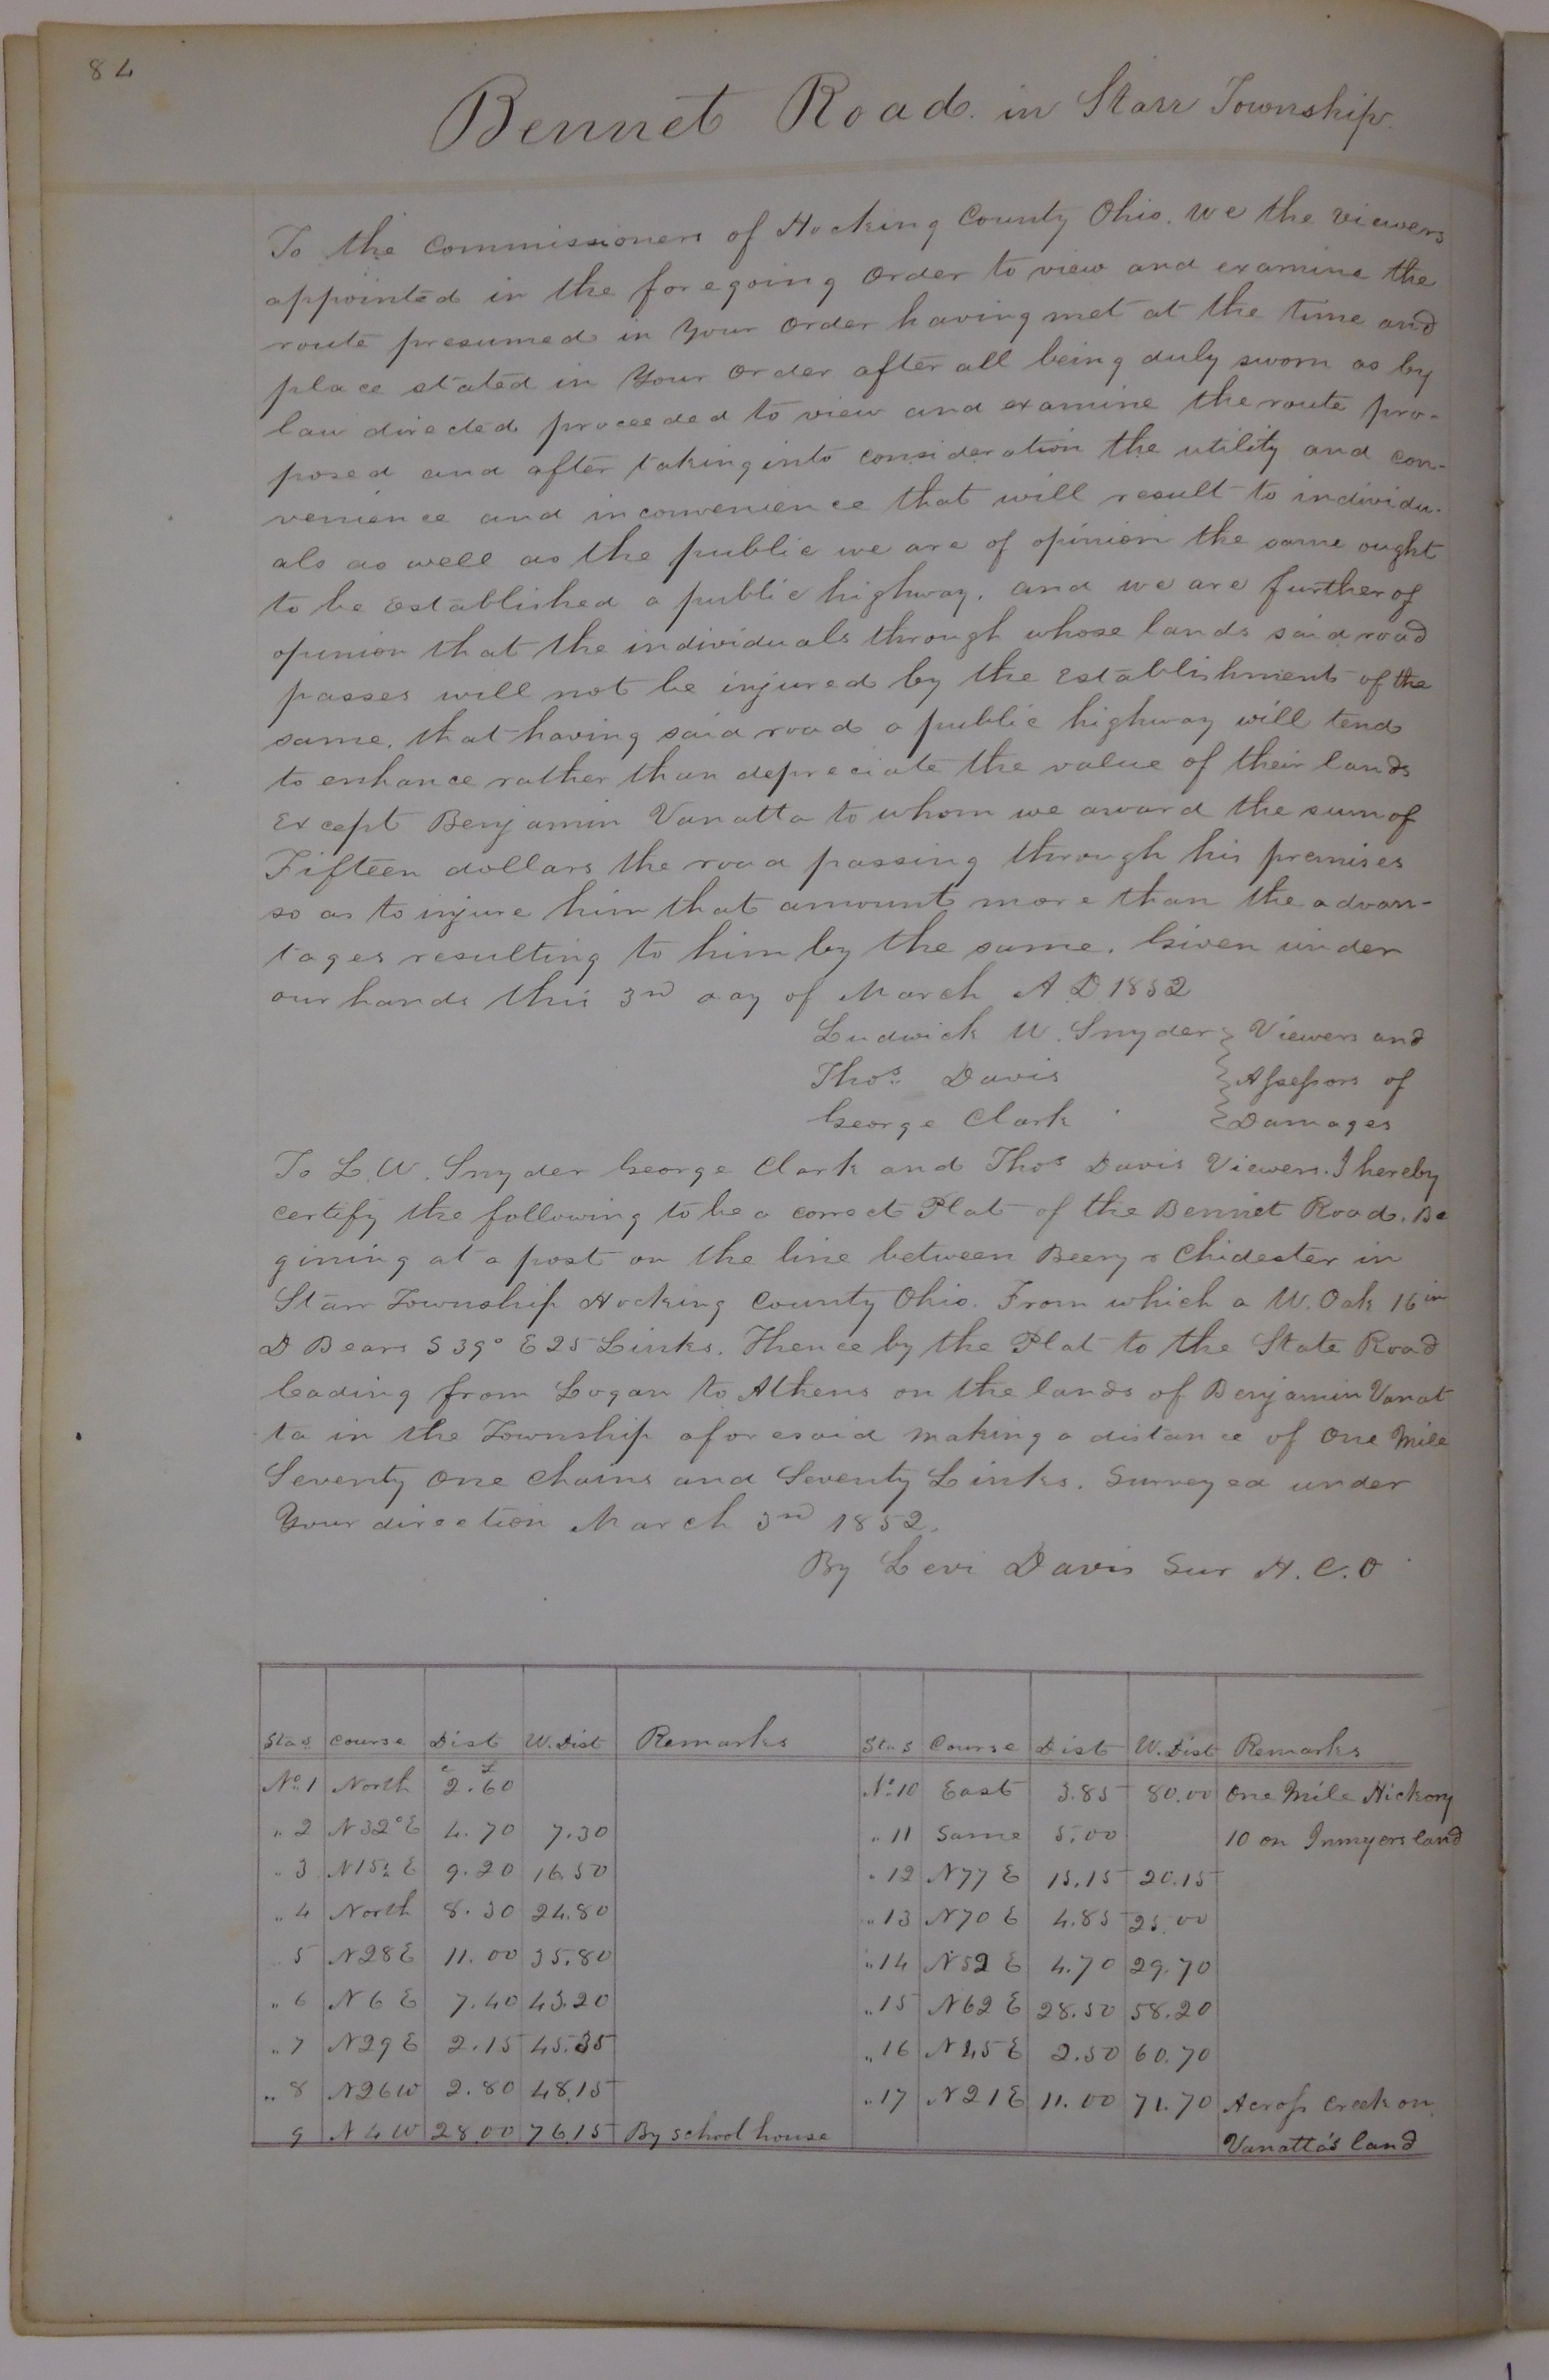 84
Bennet Road in Starr Township.
To the Commissioners of Hocking County Ohio. We the viewers
appointed in the foregoing order to view and examine the
route presumed in Your order having met at the time and
place stated in Your order after all being duly sworn as by
law directed proceeded to view and examine the route pro-
posed and after taking into consideration the utility and con-
venience and inconvenience that will result to individu-
als as well as the public we are of opinion the same ought
to be Established a public highway. and we are further of
opinion that the individuals through whose lands said road
passes will not be injured by the Establishment of the
same. that having said road a public highway will tend
to enhance rather than depreciate the value of their lands
Except Benjamin Vanatta to whom we award the sum of
Fifteen dollars the road passing through his premises
so as to injure him that amount more than the advan-
tages resulting to him by the same. Given under
our hands this 3rd day of March A D 1852
Ludwick W. Snyder } Viewers and
Thos. Davis } Assessors of
George Clark } Damages
To L. W. Snyder George Clark and Thos Davis Viewers. I hereby
certify the following to be a correct Plat of the Bennet Road. Be
gining at a post on the line between Beery & Chidester in
Starr Township Hocking County Ohio. From which a W. Oak 16 in
D Bears S 39° E 25 Links. Thence by the Plat to the State Road
leading from Logan to Athens on the lands of Benjamin Vanat
ta in the Township aforesaid making a distance of One Mile
Seventy One Chains and Seventy Links. Surveyed under
Your direction March 3rd 1852.
By Levi Davis Sur H. C. O
Stas Course Dist W. Dist Remarks Stas Course Dist W. Dist Remarks
C L
No. 1 North 2.60 No. 10 East 3.85 80.00 One Mile Hickory
" 2 N 32° E 4.70 7.30 " 11 Same 5.00 10 on Inmyers land
" 3 N 15½ E 9.20 16.50 " 12 N 77 E 15.15 20.15
" 4 North 8.30 24.80 " 13 N 70 E 4.85 25.00
" 5 N 28 E 11.00 35.80 " 14 N 52 E 4.70 29.70
" 6 N 6 E 7.40 43.20 " 15 N 62 E 28.50 58.20
" 7 N 29 E 2.15 45.35 " 16 N 45 E 2.50 60.70
" 8 N 26 W 2.80 48.15 " 17 N 21 E 11.00 71.70 Across Creek on
9 N 4 W 28.00 76.15 By school house Vanatta's land